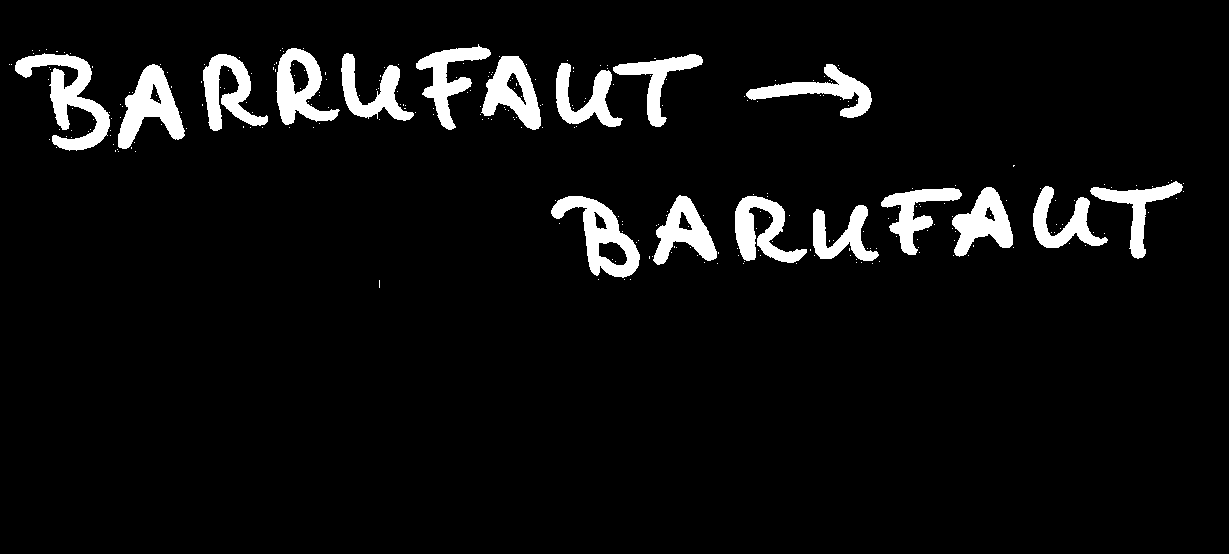 BARRUFAUT →
BARUFAUT